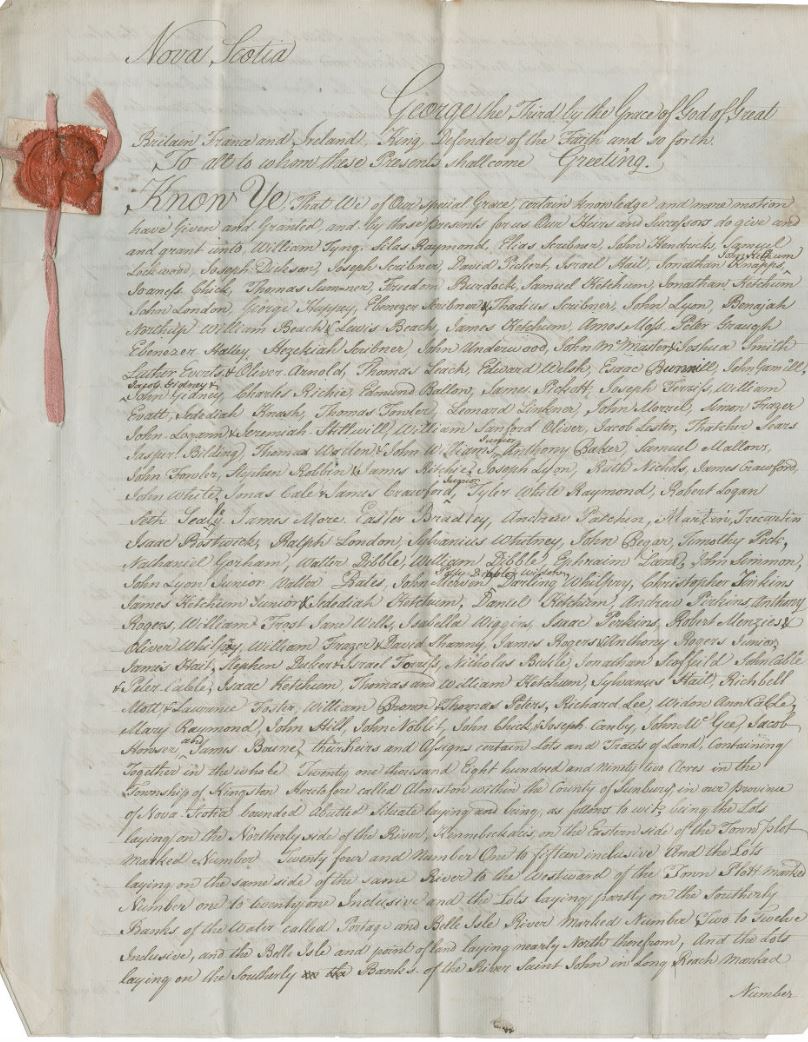 Nova Scotia
George the Third by the Grace of God of Great
Britain France and Ireland, King, Defender of the Faith and so forth.
To all to whom these Presents shall come Greeting.
Know Ye That We of Our special Grace, certain knowledge and mere motion
have Given and Granted, and by these presents for us Our Heirs and Successors do give and
and grant unto William Tyng, Silas Raymond, Elias Scribner, John Hendrick, Samuel
John Ketchum
Lockwood, Joseph Dickson, Joseph Scribner, David Pickett, Israel Hait, Jonathan Knapps,
Chick, Thomas Sumner, Freedom Burdock, Samuel Ketchum, Jonathan Ketchum
John London, George Huppy, Ebenezer Scribner & Thadius Scribner, John Lyon, Benajah
Northup William Beach & Lewis Beach, James Ketchum, Amos Moss, Peter
Ebenezer Halley, Hezekiah Scribner John Underwood, John McMaster & Joshua Smith
Luther Evarts & Oliver Arnold, Thomas Leach, Edward Welsh, Esaac Bunnill, John
Jacob Gidney &
John Gidney, Charles Richie, Edmund Ballon, James Pickett, Joseph Ferriss, William
Evatt, Jedediah Thomas Fowler, Leonard Linkner, John Morzel, Simon Frazer
John Logann & Jeremiah Stillwill, William Sanford Oliver, Jacob Lester, Thatcher Sears
Junior
Jasper Bilding, Thomas & John Williams Anthony Baker, Samuel Mallonx,
John Fowler, Stephen Robbin & James Ritchie, Joseph Lyon, Ruth Nichols, James Crawford,
Junior
John White, Jonas Cale & James Crawford, Tyler White Raymond, Robert Logan
Seth Sealy, James More, Easter Bradley, Andrew Patchen, Martin Trecartin
Isaac Bostwick, Ralph London, Sylvanius Whitney, John Cogar, Timothy Peck,
Nathaniel Gorham, Walter Dibble, William Dibble, Ephraim Land, John Simmon,
John Lyon Junior Walter Bates, John Darling Whilpry, Christopher Jinkins
James Ketchum Junior & Jedediah Ketchum, Daniel Ketchum, Andrew Perkins, Anthony
Rogers, William Frost Jane Wells, Isabella Wiggins, Isaac Perkins, Robert Menzies &
Oliver Whilpry, William Frazer & David Shanny, James Rogers & Anthony Rogers Junior,
James Hait, Stephen & Israel Ferriss, Nicholas Jonathan Scofeild John Cable
& Peter Cable, Isaac Ketchum, Thomas and William Ketchum, Sylvanus Hait, Richbell
Mott & Laurance Foster, William Brown & Thomas Peters, Richard Lee, Widow Ann Cable,
Mary Raymond, John Hill, John Noblit, John Chick & Joseph Canby, John McGee, Jacob
and
Howser, James Bourne, their Heirs and Assigns certain Lots and Tracts of Land, Containing
Together in the whole Twenty one thousand Eight hundred and ninety two Acres in the
Township of Kingston Heretofore called Almeston within the County of Sunbury in our province
of Nova Scotia bounded Abutted Situate laying and being, as follows to wit, being the Lots
laying on the Northerly side of the River, Kennebeckacis, on the Eastern side of the Town plot
Marked Number Twenty four and number One to fifteen inclusive And the Lots
laying on the same side of the same River to the Westward of the Town Plott Marked
Number one to twenty one Inclusive and the Lots laying partly on the Southerly
Banks of the Water called Portage and Belle Isle River Marked Number Two to Twelve
Inclusive, and the Belle Isle and point of land laying nearly North therefrom, And the Lots
laying on the Southerly Banks of the River Saint John in Long Reach Marked
Number